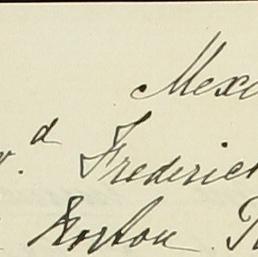 Mexi
v.d Frederick
Boston